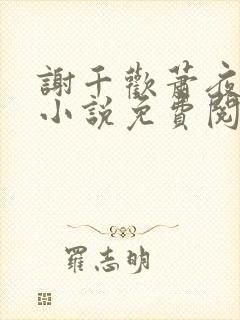 謝千歡蕭夜
小說免費閱
羅志明